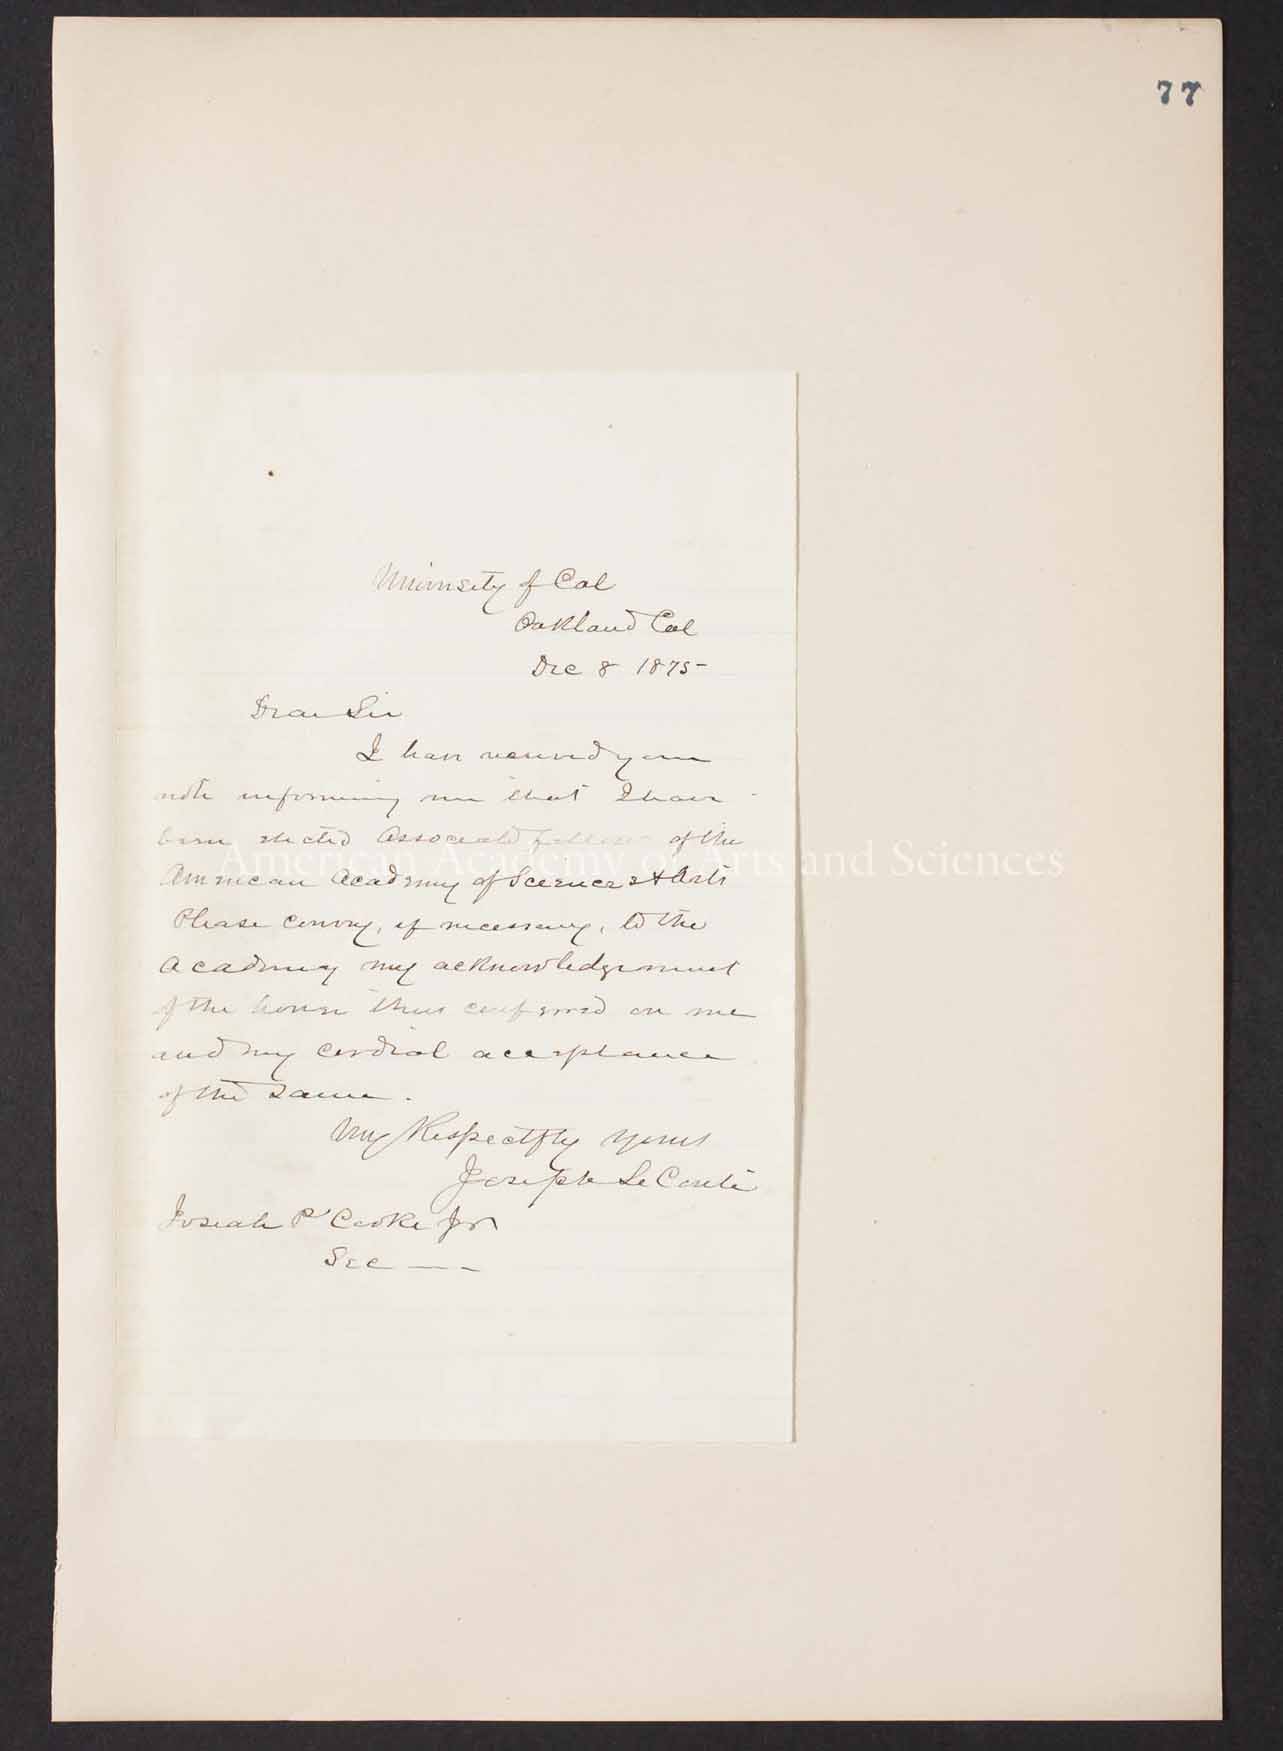 77
University of Cal
Oakland Cal
Dec 8 1875-
Dear Sir
I have received your
note informing me that I have
been elected Associate fellow of the
American Academy of Arts and Sciences
American Academy of Sciences & Arts
Please convey, if necessary, to the
Academy my acknowledgement
of the honor thus conferred on me
and my cordial acceptance
of the same.
Respectfly yours
Joseph LeConte
Josiah P Cooke Jr
Sec